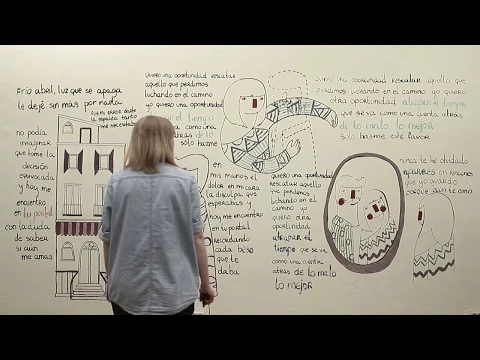 Frío abril, luz que se apaga
te dejé sin más por nada
Fuera pasea desde
la espalda tanto
me necesitabas
no podía
imaginar
que tomé la
decisión
equivocada
y hoy me
encuentro
en tu portal
con la duda
de saber
si aun
me amas
quiero una oportunidad rescatar
aquello que perdimos
luchando en el camino
yo quiero otra oportunidad
atrapar el tiempo
que se va como una
cuenta atrás de lo
sólo hazme
en
mis manos el
dolor en mi cara
la disculpa que
esperabas y
hoy me encuentro
en tu portal
recordando
cada beso
que te
daba
quiero una oportunidad
rescatar aquello que
perdimos luchando
en el camino
yo quiero
otra
oportunidad
atrapar el
tiempo que se va
como una cuenta
atrás de lo malo
lo mejor
quiero una oportunidad rescatar aquello que
perdimos luchando en el camino yo quiero
otra oportunidad atrapar el tiempo
que se va como una cuenta atrás
de lo malo lo mejor
sólo hazme este favor
nunca te he olvidado
aparreo en rincones
que yo guardo
porque aun te amo